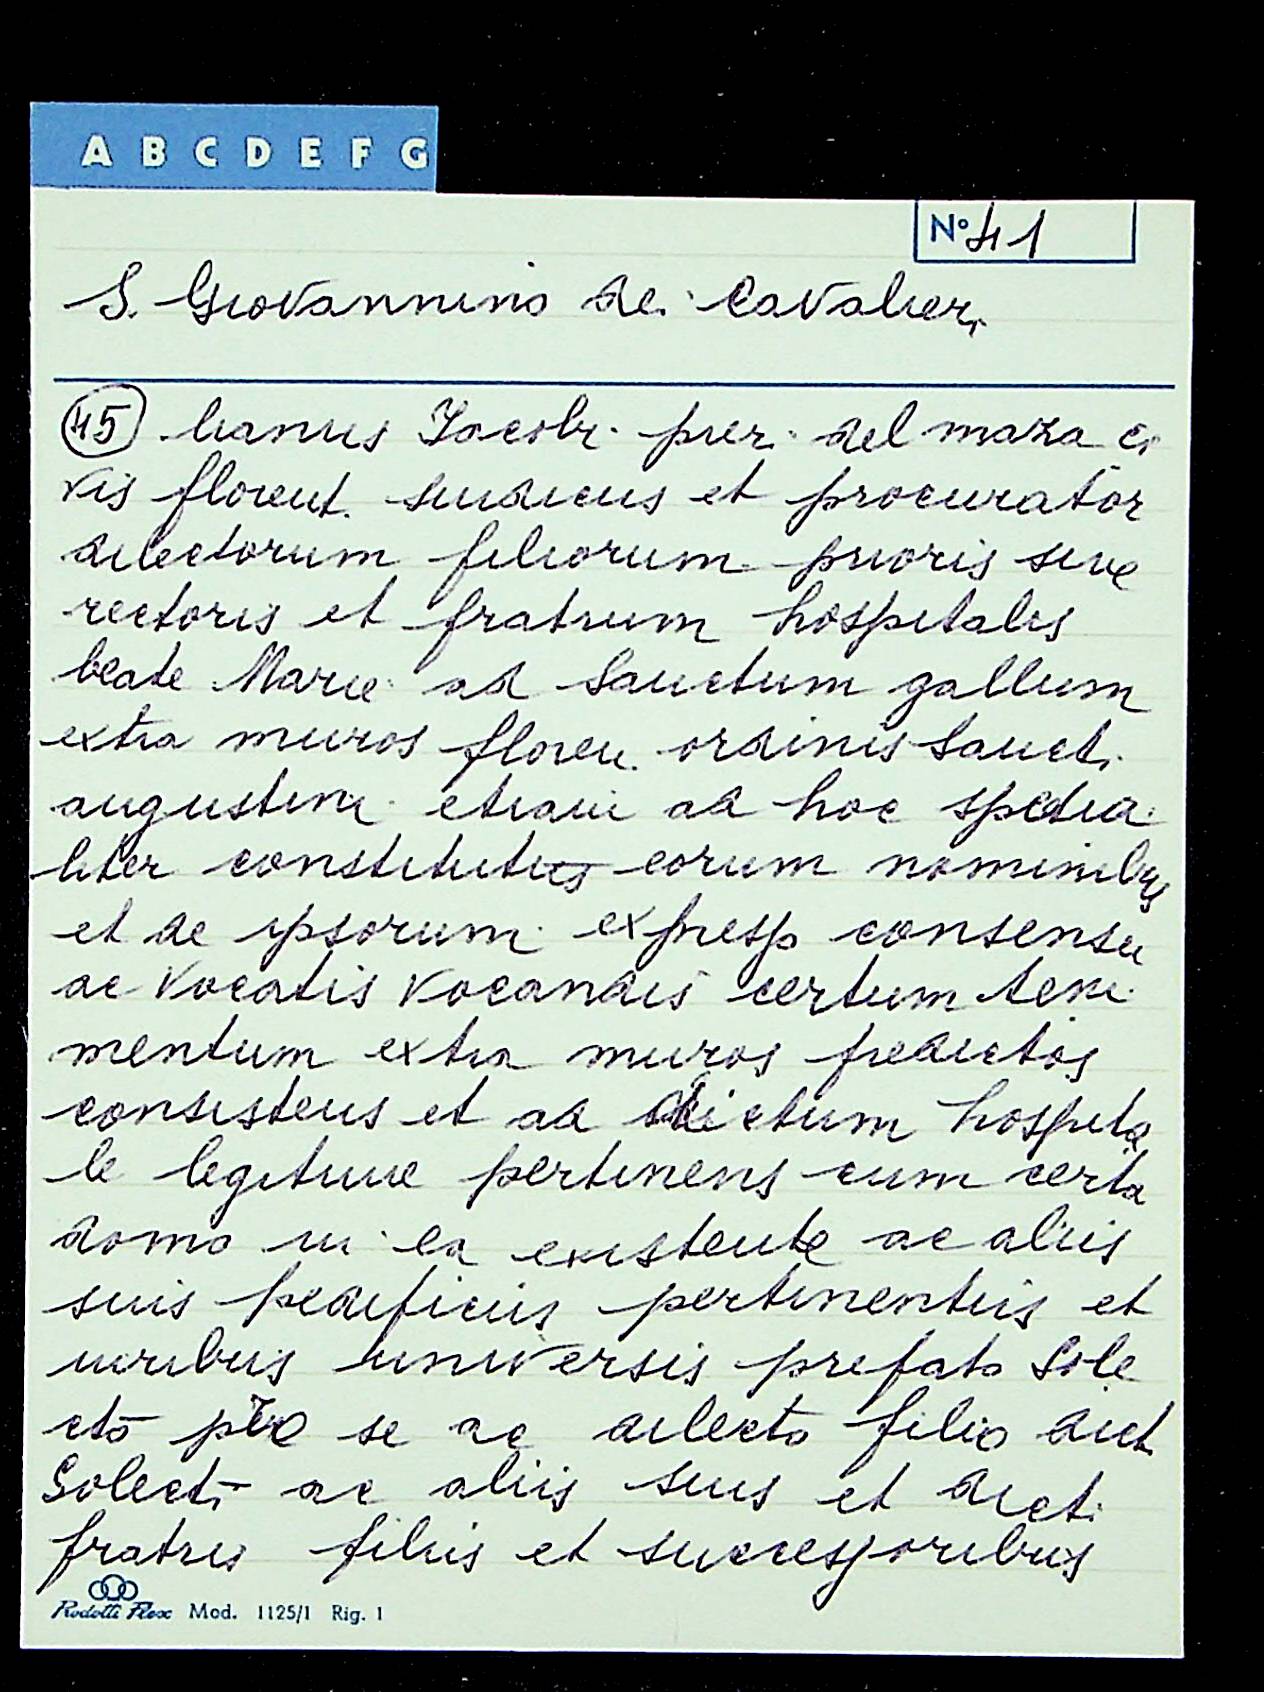 A B C D E F G
N° 41
S. Giovannino dei Cavalieri
45 lianus Jacobi pieri del maza ci
vis florent. sindicus et procurator
dilectorum filiorum prioris sive
rectoris et fratrum hospitalis
beate Marie ad Sanctum gallum
extra muros floren. ordinis Sancti
augustini etiam ad hoc spetia
liter constitutus eorum nominibus
et de ipsorum expresso consensu
ac vocatis vocandis certum teni
mentum extra muros predictos
consistens et ad dictum hospita
le legitime pertinens cum certa
domo in ea existente ac aliis
suis hedificiis pertinentiis et
iuribus universis prefato Sole
cto pro se ac dilecto filio dict.
Solecti ac aliis suis et dicti
fratris filiis et successoribus
Rodotti Flex Mod. 1125/1 Rig. 1